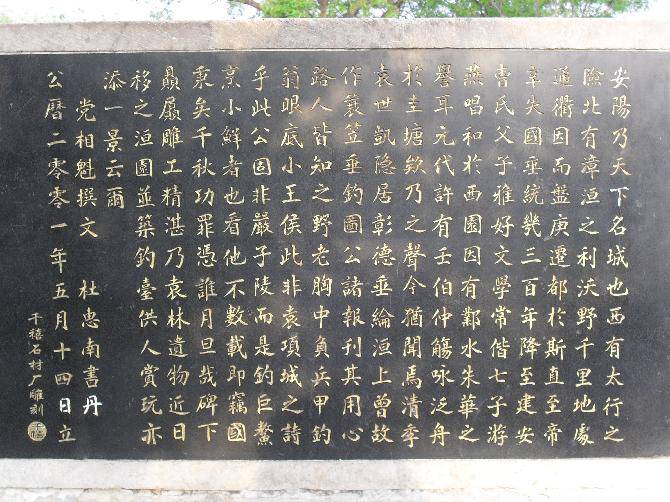 安陽乃天下名城也西有太行之
險北有漳洹之利沃野千里地處
通衢因而盤庚遷都於斯直至帝
辛失國垂統幾三百年降至建安
曹氏父子雅好文學常偕七子游
燕唱和於西園因有鄴水朱華之
譽耳元代許有壬伯仲觴咏泛舟
於圭塘欸乃之聲今猶聞焉清季
袁世凱隐居彰德垂綸洹上曾故
作蓑笠垂釣圖公諸報刊其用心
路人皆知之野老胸中負兵甲釣
翁眼底小王侯此非袁項城之詩
乎此公固非嚴子陵而是釣巨鰲
烹小鮮者也看他不數載即竊國
秉矣千秋功罪憑誰月旦哉碑下
贔屭雕工精湛乃袁林遺物近日
移之洹園並築釣臺供人賞玩亦
添一景云爾
党相魁撰文 杜惠南書丹
公曆二零零一年五月十四日立
千禧石材厂雕刻